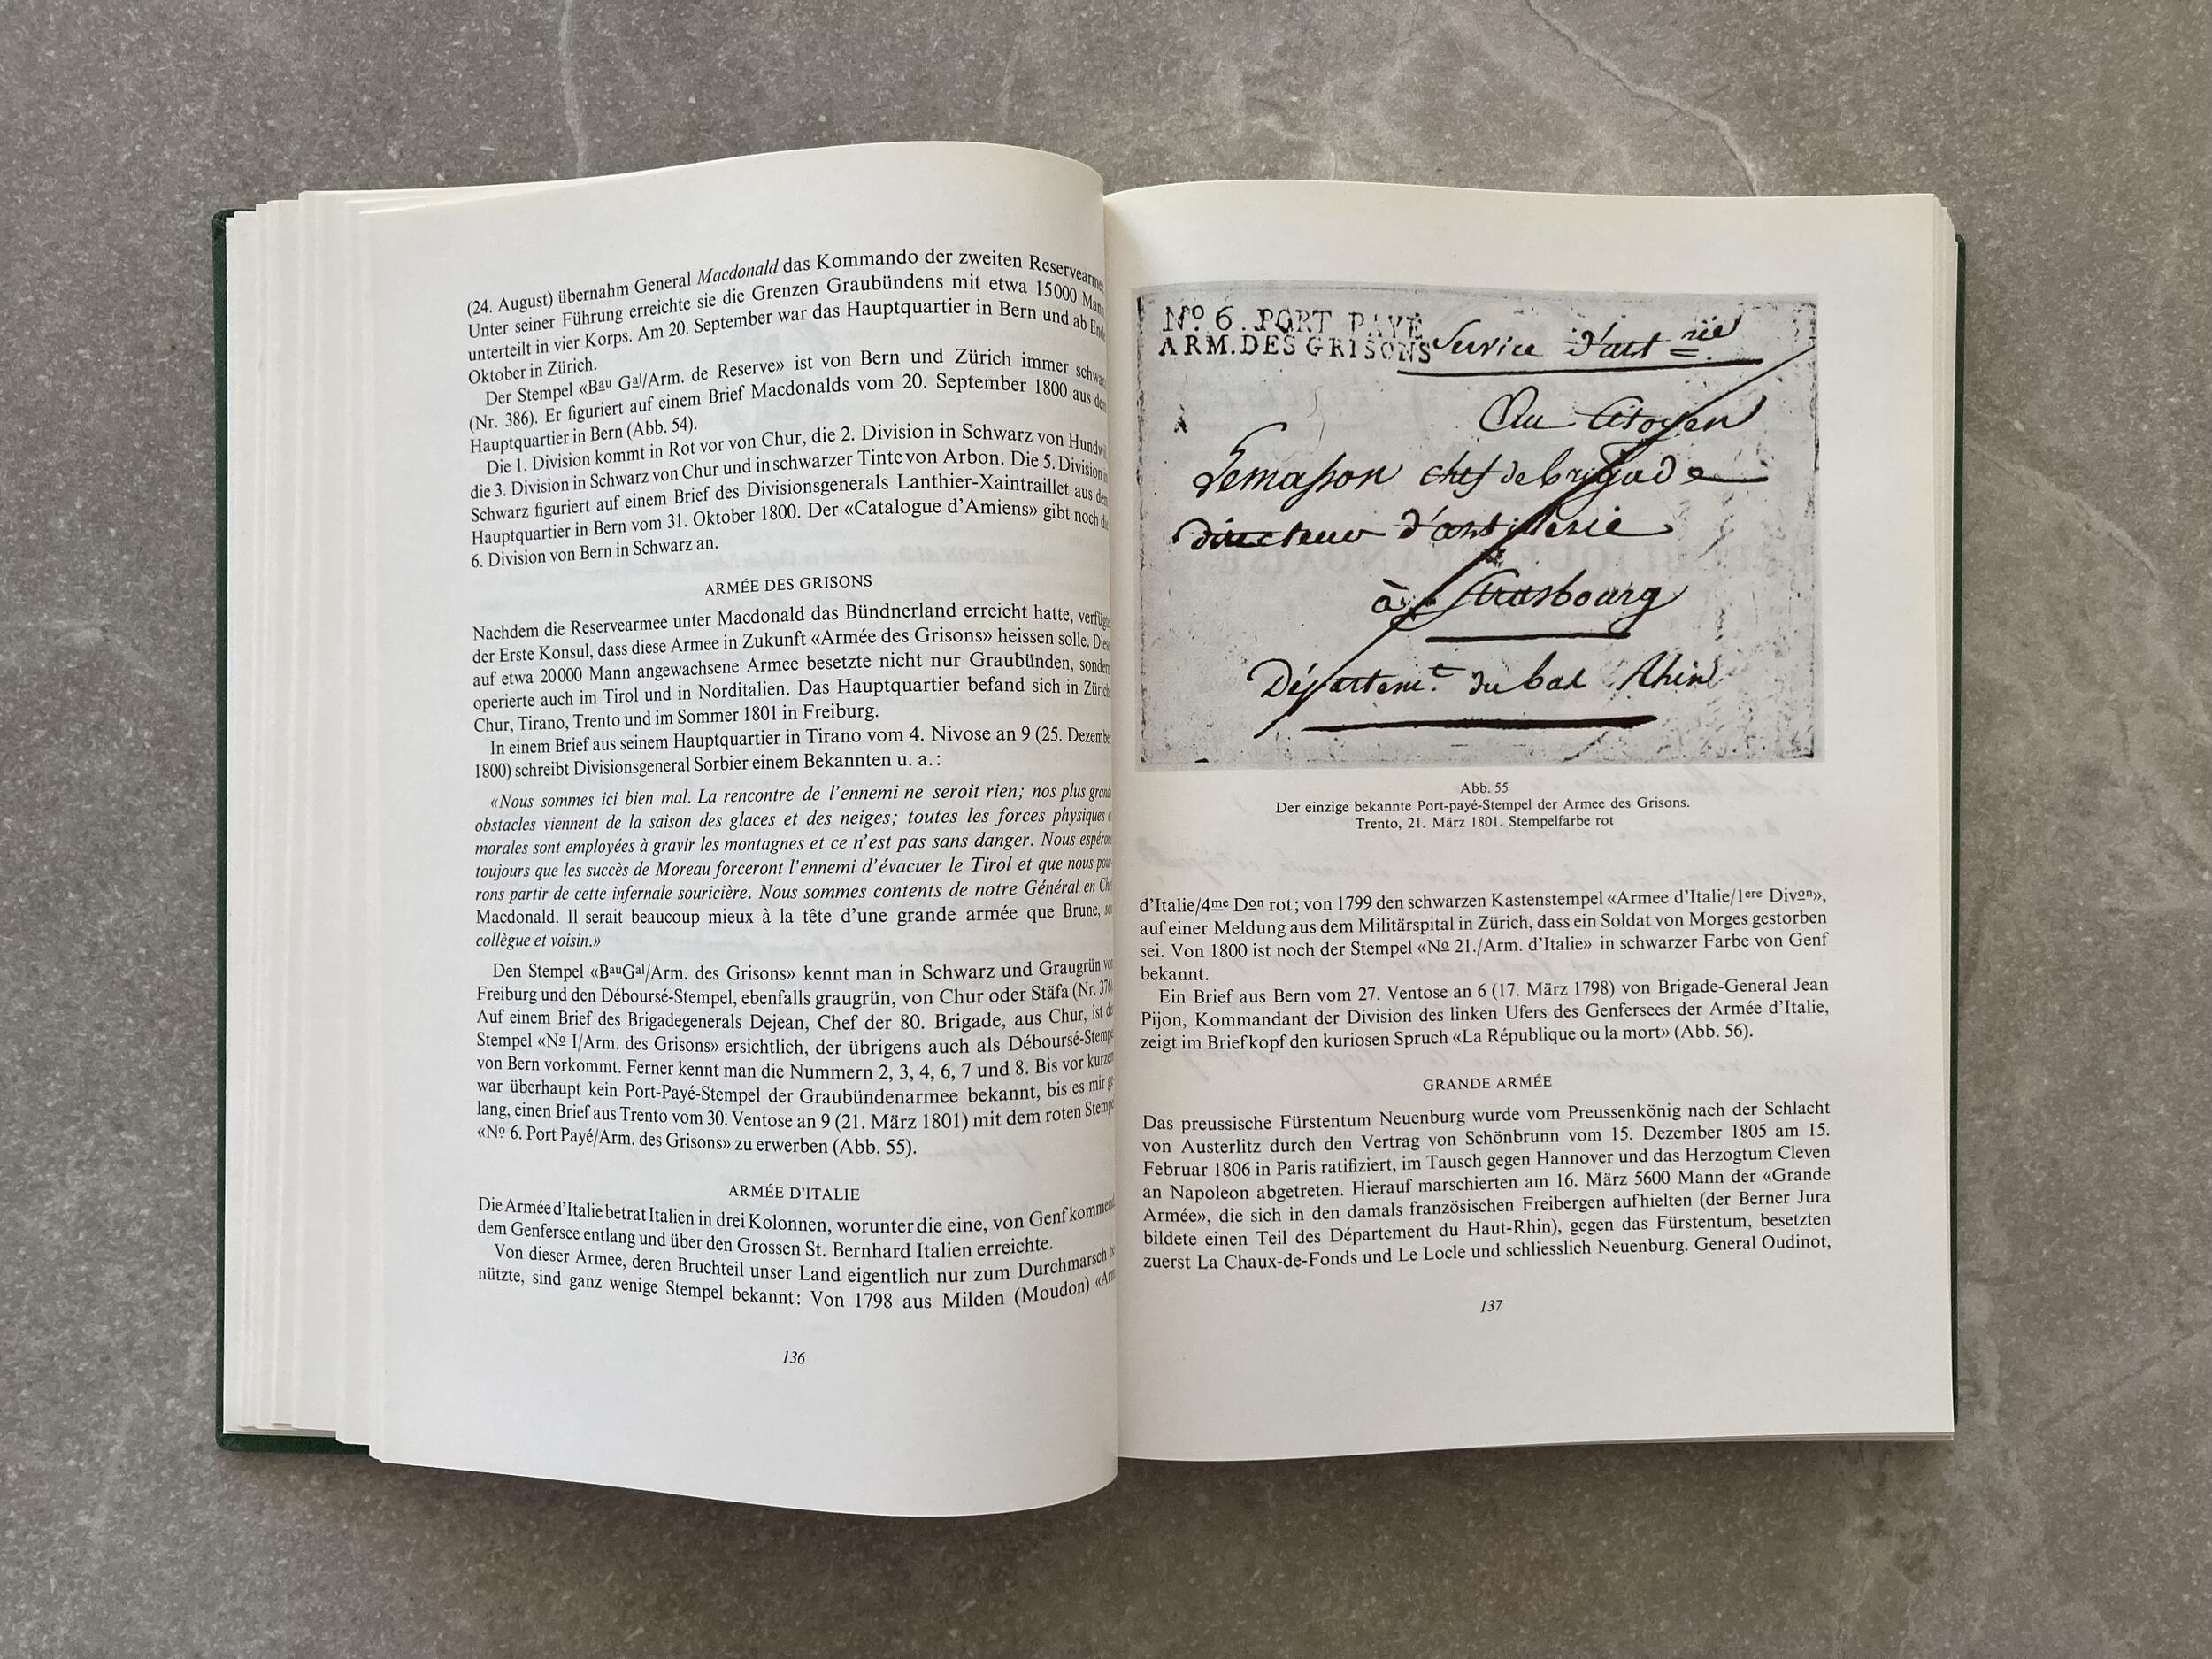 (24. August) übernahm General Macdonald das Kommando der zweiten Reservearmee.
Unter seiner Führung erreichte sie die Grenzen Graubündens mit etwa 15000 Mann
unterteilt in vier Korps. Am 20. September war das Hauptquartier in Bern und ab Ende
Oktober in Zürich.
Der Stempel «Bau Gal/Arm. de Reserve» ist von Bern und Zürich immer schwarz
(Nr. 386). Er figuriert auf einem Brief Macdonalds vom 20. September 1800 aus dem
Hauptquartier in Bern (Abb. 54).
Die 1. Division kommt in Rot vor von Chur, die 2. Division in Schwarz von Hundwil,
die 3. Division in Schwarz von Chur und in schwarzer Tinte von Arbon. Die 5. Division in
Schwarz figuriert auf einem Brief des Divisionsgenerals Lanthier-Xaintraillet aus dem
Hauptquartier in Bern vom 31. Oktober 1800. Der «Catalogue d'Amiens» gibt noch die
6. Division von Bern in Schwarz an.
ARMÉE DES GRISONS
Nachdem die Reservearmee unter Macdonald das Bündnerland erreicht hatte, verfügte
der Erste Konsul, dass diese Armee in Zukunft «Armée des Grisons» heissen solle. Diese
auf etwa 20000 Mann angewachsene Armee besetzte nicht nur Graubünden, sondern
operierte auch im Tirol und in Norditalien. Das Hauptquartier befand sich in Zürich,
Chur, Tirano, Trento und im Sommer 1801 in Freiburg.
In einem Brief aus seinem Hauptquartier in Tirano vom 4. Nivose an 9 (25. Dezember
1800) schreibt Divisionsgeneral Sorbier einem Bekannten u. a.:
«Nous sommes ici bien mal. La rencontre de l'ennemi ne seroit rien; nos plus grands
obstacles viennent de la saison des glaces et des neiges; toutes les forces physiques et
morales sont employées à gravir les montagnes et ce n'est pas sans danger. Nous espérons
toujours que les succès de Moreau forceront l'ennemi d'évacuer le Tirol et que nous pour-
rons partir de cette infernale souricière. Nous sommes contents de notre Général en Chef
Macdonald. Il serait beaucoup mieux à la tête d'une grande armée que Brune, son
collègue et voisin.»
Den Stempel «BauGal/Arm. des Grisons» kennt man in Schwarz und Graugrün von
Freiburg und den Déboursé-Stempel, ebenfalls graugrün, von Chur oder Stäfa (Nr. 376).
Auf einem Brief des Brigadegenerals Dejean, Chef der 80. Brigade, aus Chur, ist der
Stempel «No I/Arm. des Grisons» ersichtlich, der übrigens auch als Déboursé-Stempel
von Bern vorkommt. Ferner kennt man die Nummern 2, 3, 4, 6, 7 und 8. Bis vor kurzem
war überhaupt kein Port-Payé-Stempel der Graubündenarmee bekannt, bis es mir ge-
lang, einen Brief aus Trento vom 30. Ventose an 9 (21. März 1801) mit dem roten Stempel
«No 6. Port Payé/Arm. des Grisons» zu erwerben (Abb. 55).
ARMÉE D'ITALIE
Die Armée d'Italie betrat Italien in drei Kolonnen, worunter die eine, von Genf kommend,
dem Genfersee entlang und über den Grossen St. Bernhard Italien erreichte.
Von dieser Armee, deren Bruchteil unser Land eigentlich nur zum Durchmarsch be-
nützte, sind ganz wenige Stempel bekannt: Von 1798 aus Milden (Moudon) «Arm.
136
No 6. PORT PAYÉ
ARM. DES GRISONS
Service d'art rie
Au Citoyen
Lemasson chef de brigade
directeur d'artillerie
à Strasbourg
Départemt. du bas Rhin
Abb. 55
Der einzige bekannte Port-payé-Stempel der Armee des Grisons.
Trento, 21. März 1801. Stempelfarbe rot
d'Italie/4me Don rot; von 1799 den schwarzen Kastenstempel «Armee d'Italie/1ere Divon»,
auf einer Meldung aus dem Militärspital in Zürich, dass ein Soldat von Morges gestorben
sei. Von 1800 ist noch der Stempel «No 21./Arm. d'Italie» in schwarzer Farbe von Genf
bekannt.
Ein Brief aus Bern vom 27. Ventose an 6 (17. März 1798) von Brigade-General Jean
Pijon, Kommandant der Division des linken Ufers des Genfersees der Armée d'Italie,
zeigt im Briefkopf den kuriosen Spruch «La République ou la mort» (Abb. 56).
GRANDE ARMÉE
Das preussische Fürstentum Neuenburg wurde vom Preussenkönig nach der Schlacht
von Austerlitz durch den Vertrag von Schönbrunn vom 15. Dezember 1805 am 15.
Februar 1806 in Paris ratifiziert, im Tausch gegen Hannover und das Herzogtum Cleven
an Napoleon abgetreten. Hierauf marschierten am 16. März 5600 Mann der «Grande
Armée», die sich in den damals französischen Freibergen aufhielten (der Berner Jura
bildete einen Teil des Département du Haut-Rhin), gegen das Fürstentum, besetzten
zuerst La Chaux-de-Fonds und Le Locle und schliesslich Neuenburg. General Oudinot,
137